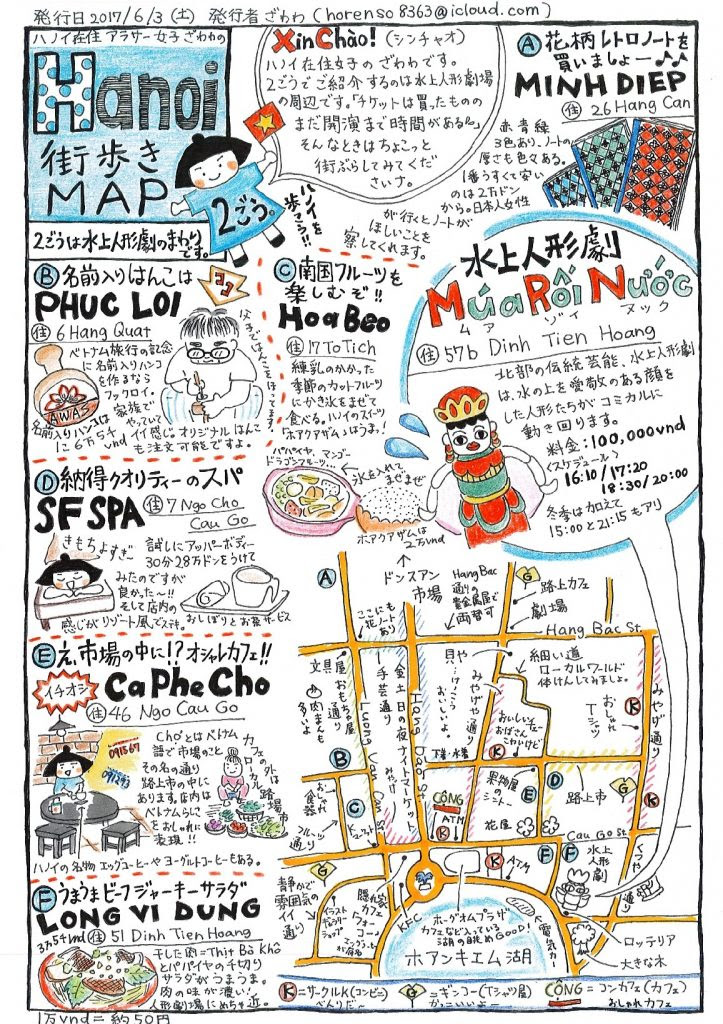 発行日 2017/6/3(土) 発行者 ざわわ (horenso8363@icloud.com)
ハノイ在住 アラサー女子 ざわわの
Hanoi
街歩き
MAP
2ごう。
2ごうは水上人形劇のまわりです。
Xin Chào! (シンチャオ)
ハノイ在住女子の ざわわです。
2ごうでご紹介するのは水上人形劇場
の周辺です。「チケットは買ったものの
まだ開演まで時間がある」
そんなときはちょこっと
街ぶらしてみてくだ
さいナ。
ハノイを
歩こう!!
A 花柄レトロノートを
買いましょー
MINH DIEP
住 26 Hang Can
赤 青 緑
3色あり、ノートの
厚さも色々ある。
1番うすくて安い
のは2万ドン
から。日本人女性
が行くとノートが
ほしいことを
察してくれます。
B 名前入りはんこは
ココ
PHUC LOI
住 6 Hang Quat
ベトナム旅行の記念
に名前入りハンコ
を作るなら
フックロイ。
家族で
やっていて
イイ感じ。オリジナルはんこ
も注文可能ですよ。
AWAS
名前入りハンコは
に6万5千vnd
C 南国フルーツを
楽しむぞ!!
Hoa Beo
住 17 To Tich
練乳のかかった
季節のカットフルーツ
にかき氷をまぜて
食べる。ハノイのスイーツ
「ホアクアザム」はうま!
パパイヤ、マンゴー
ドラゴンフルーツ…
氷を入れて
まぜまぜ
ホアクアザムは
2万vnd
水上人形劇
Múa Rối Nước
ムア ゾイ ヌック
住 57b Dinh Tien Hoang
北部の伝統芸能、水上人形劇
は、水の上を愛敬のある顔を
した人形たちがコミカルに
動き回ります。
料金:100,000vnd
<スケジュール>
16:10/17:20
18:30/20:00
冬季は加えて
15:00と21:15もアリ
D 納得クオリティーのスパ
SF SPA
住 7 Ngo Cho
Cau Go
きもちよすぎ~
試しにアッパーボディー
30分28万ドンをうけて
みたのですが
良かった~!!
そして店内の
感じがリゾート風でステキ。
おしぼりとお茶サービス
E え、市場の中に!? オシャレカフェ!!
イチオシ
Ca Phe Cho
住 46 Ngo Cau Go
Choとはベトナム
語で市場のこと
その名の通り
路上市の中に
あります。店内は
ベトナムらしさ
をおしゃれに
表現!!
カフェの外は
ローカル
路上市場
ハノイの名物 エッグコーヒーやヨーグルトコーヒーもある。
F うまうまビーフジャーキーサラダ
LONG VI DUNG
3万5千vnd 住 51 Dinh Tien Hoang
干した肉=Thịt Bò Khô
とパパイヤの千切り
サラダがうまうま。
肉の味が濃い!
人形劇場にめちゃ近。
1万vnd=約50円
A
ドンスアン
市場
Hang Bac
通りの
貴金属屋で
両替可
G
路上カフェ
劇場
Hang Bac St
ここにも
花ノート
あり
文具屋
肉まんも
多いよ
おもちゃ屋
通り
手芸通り
Luong Van Can St
金土日の夜ナイトマーケット
Hang Dao St
みやげ通り
細い道
ローカルワールド
体けんしてみましょ。
おいしいチェー
おばさん
こわいけど
K
おしゃれ
Tシャツ
みやげ通り
B
おしゃれ
食器
C
フルーツ
通り
CỘNG
ATM
K
果物屋
のシントー
花屋
E
D
路上市
G
K
Cau Go St
くつや
通り
G
静かで
雰囲気の
イイ
通り
イラスト
ギャラリー
ショップ
隠れ家
カフェ
ワオ
コーヒー
KFC
K
ATM
F
F
水上
人形
劇
ホーグオムプラザ
カフェなど入っている
湖の眺めGOOD!
ホアンキエム湖
電気カー
ロッテリア
大きな木
K =サークルK(コンビニ)
べんりだ~
G =ギンコー(Tシャツ屋)
かっこいいよー
CỘNG =コンカフェ(カフェ)
おしゃれカフェ